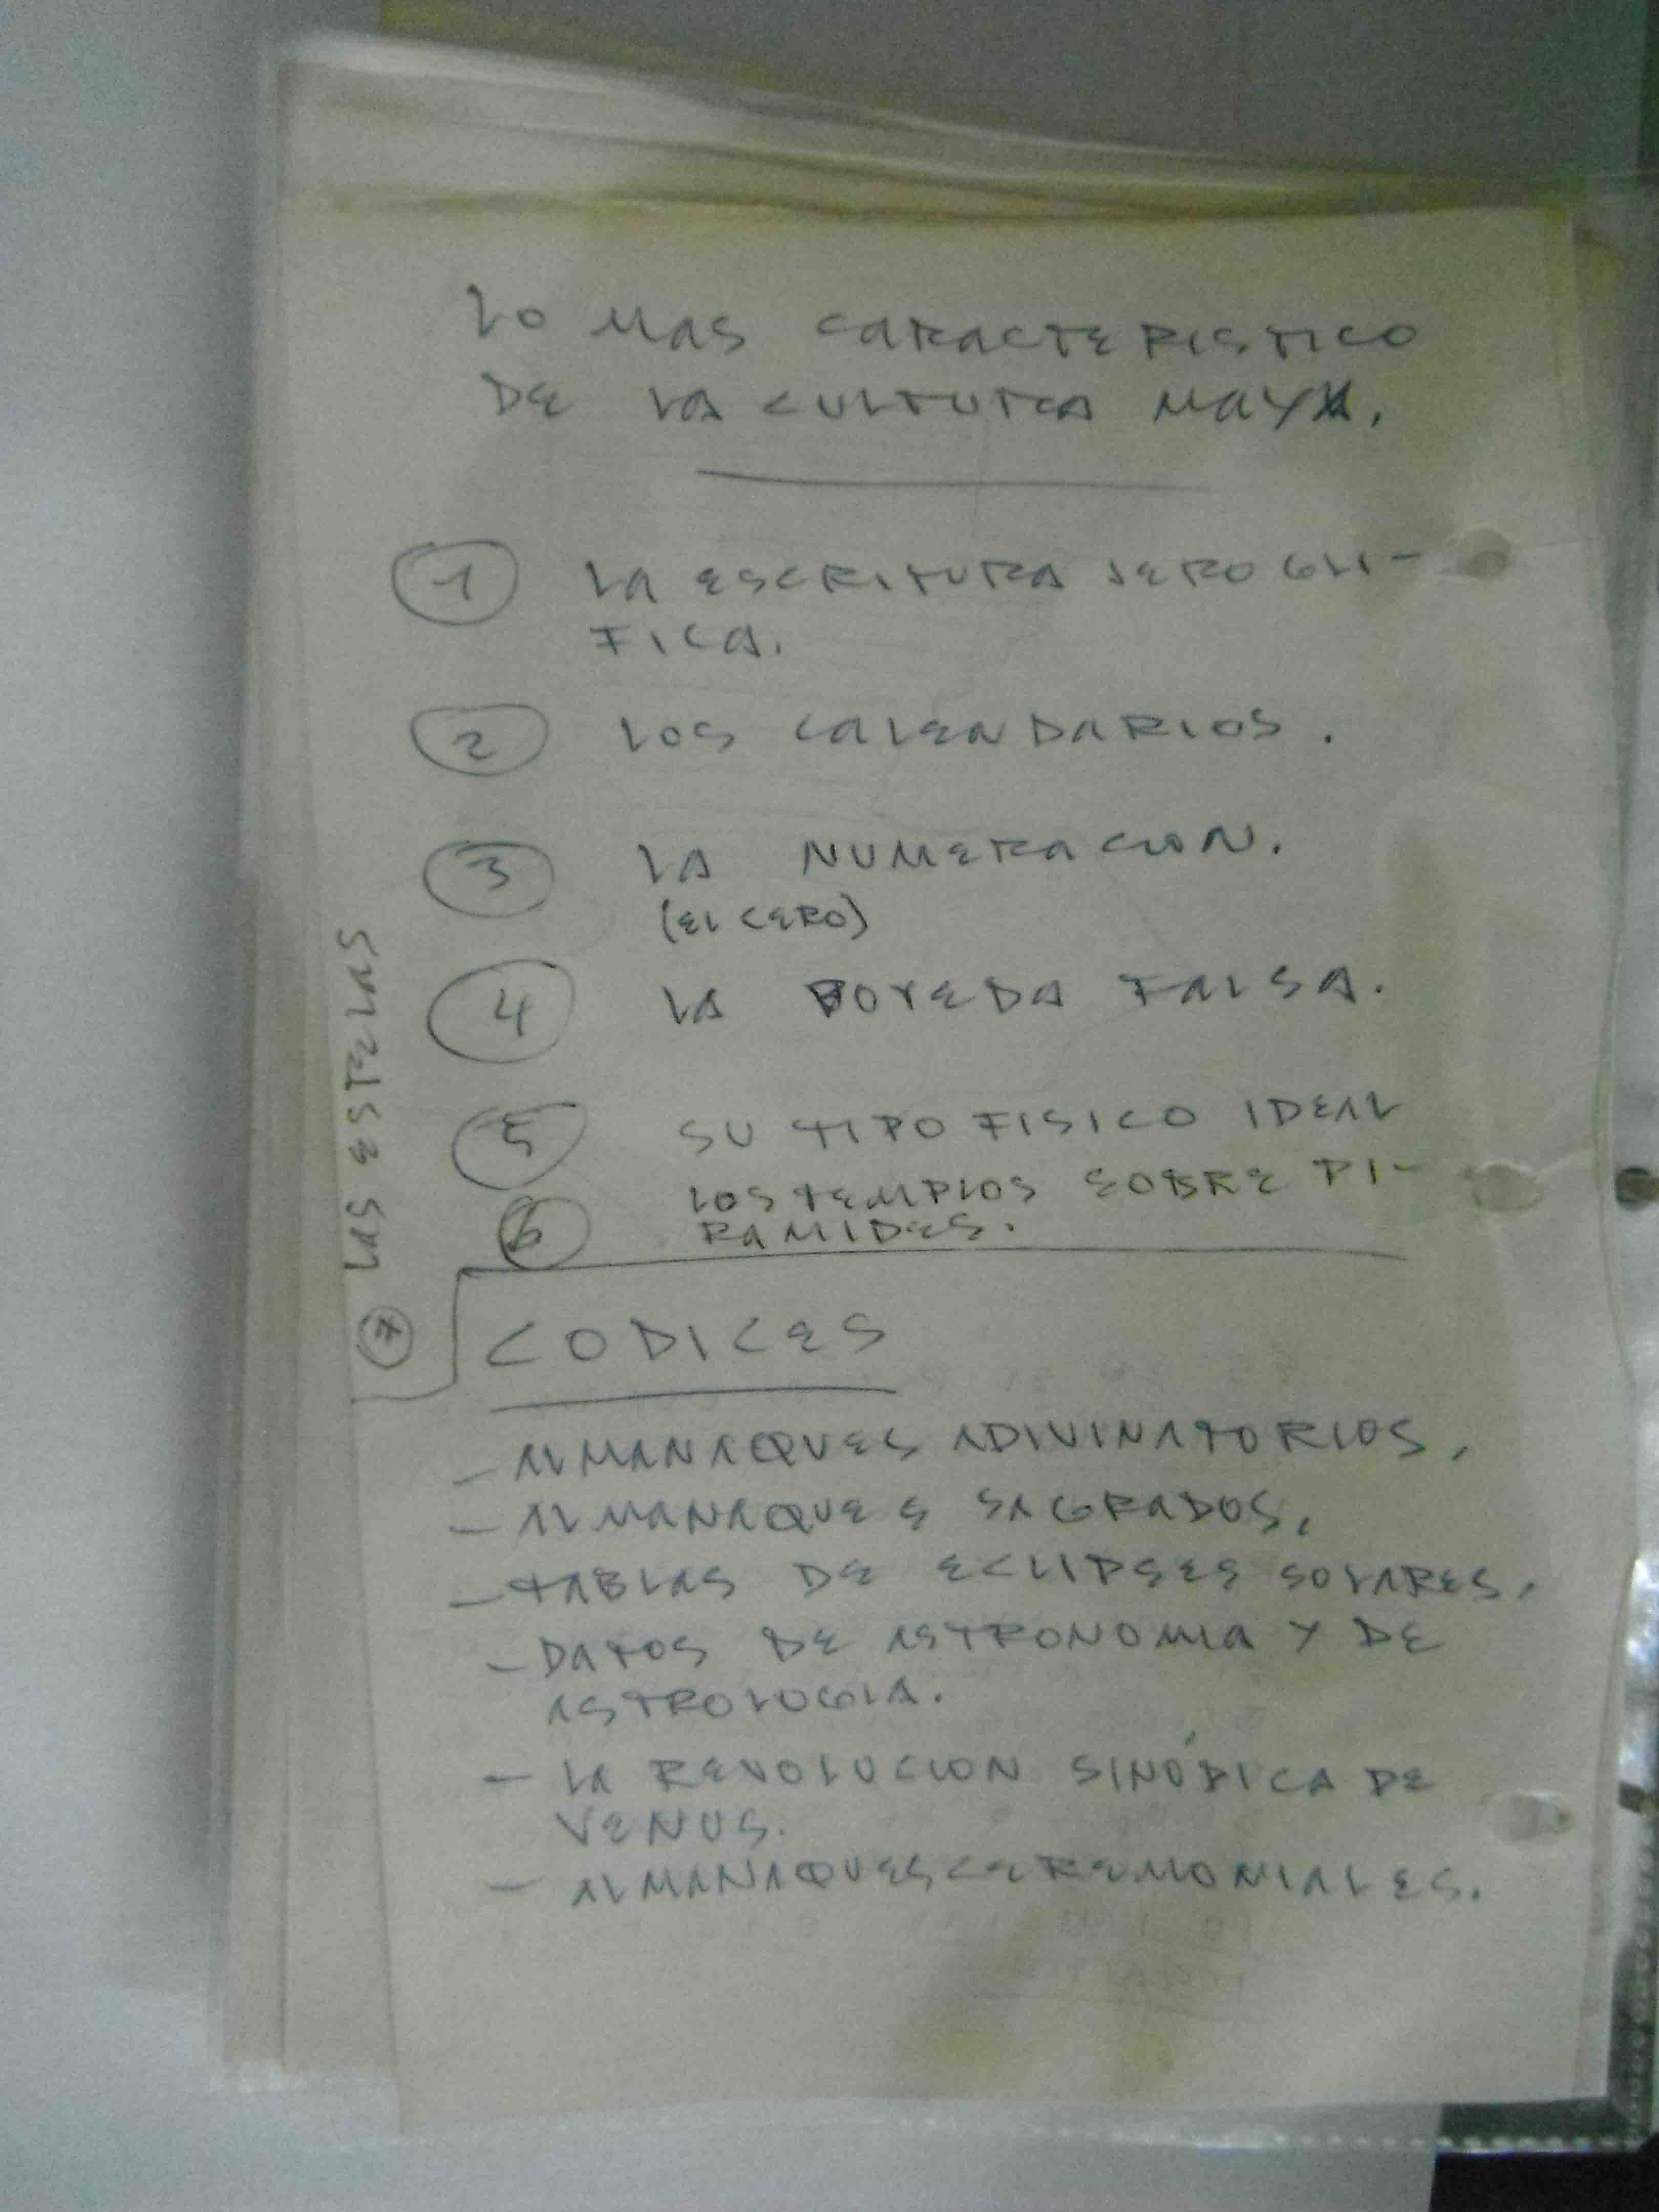 LO MAS CARACTERISTICO
DE LA CULTURA MAYA.
1 LA ESCRITURA JEROGLI-
FICA.
2 LOS CALENDARIOS.
3 LA NUMERACION.
(EL CERO)
4 LA BOVEDA FALSA.
5 SU TIPO FISICO IDEAL
6 LOS TEMPLOS SOBRE PI-
RAMIDES.
7 LAS ESTELAS
CODICES
- ALMANAQUES ADIVINATORIOS,
- ALMANAQUES SAGRADOS,
- TABLAS DE ECLIPSES SOLARES,
- DATOS DE ASTRONOMIA Y DE
ASTROLOGIA.
- LA REVOLUCION SINÓDICA DE
VENUS.
- ALMANAQUES CEREMONIALES.